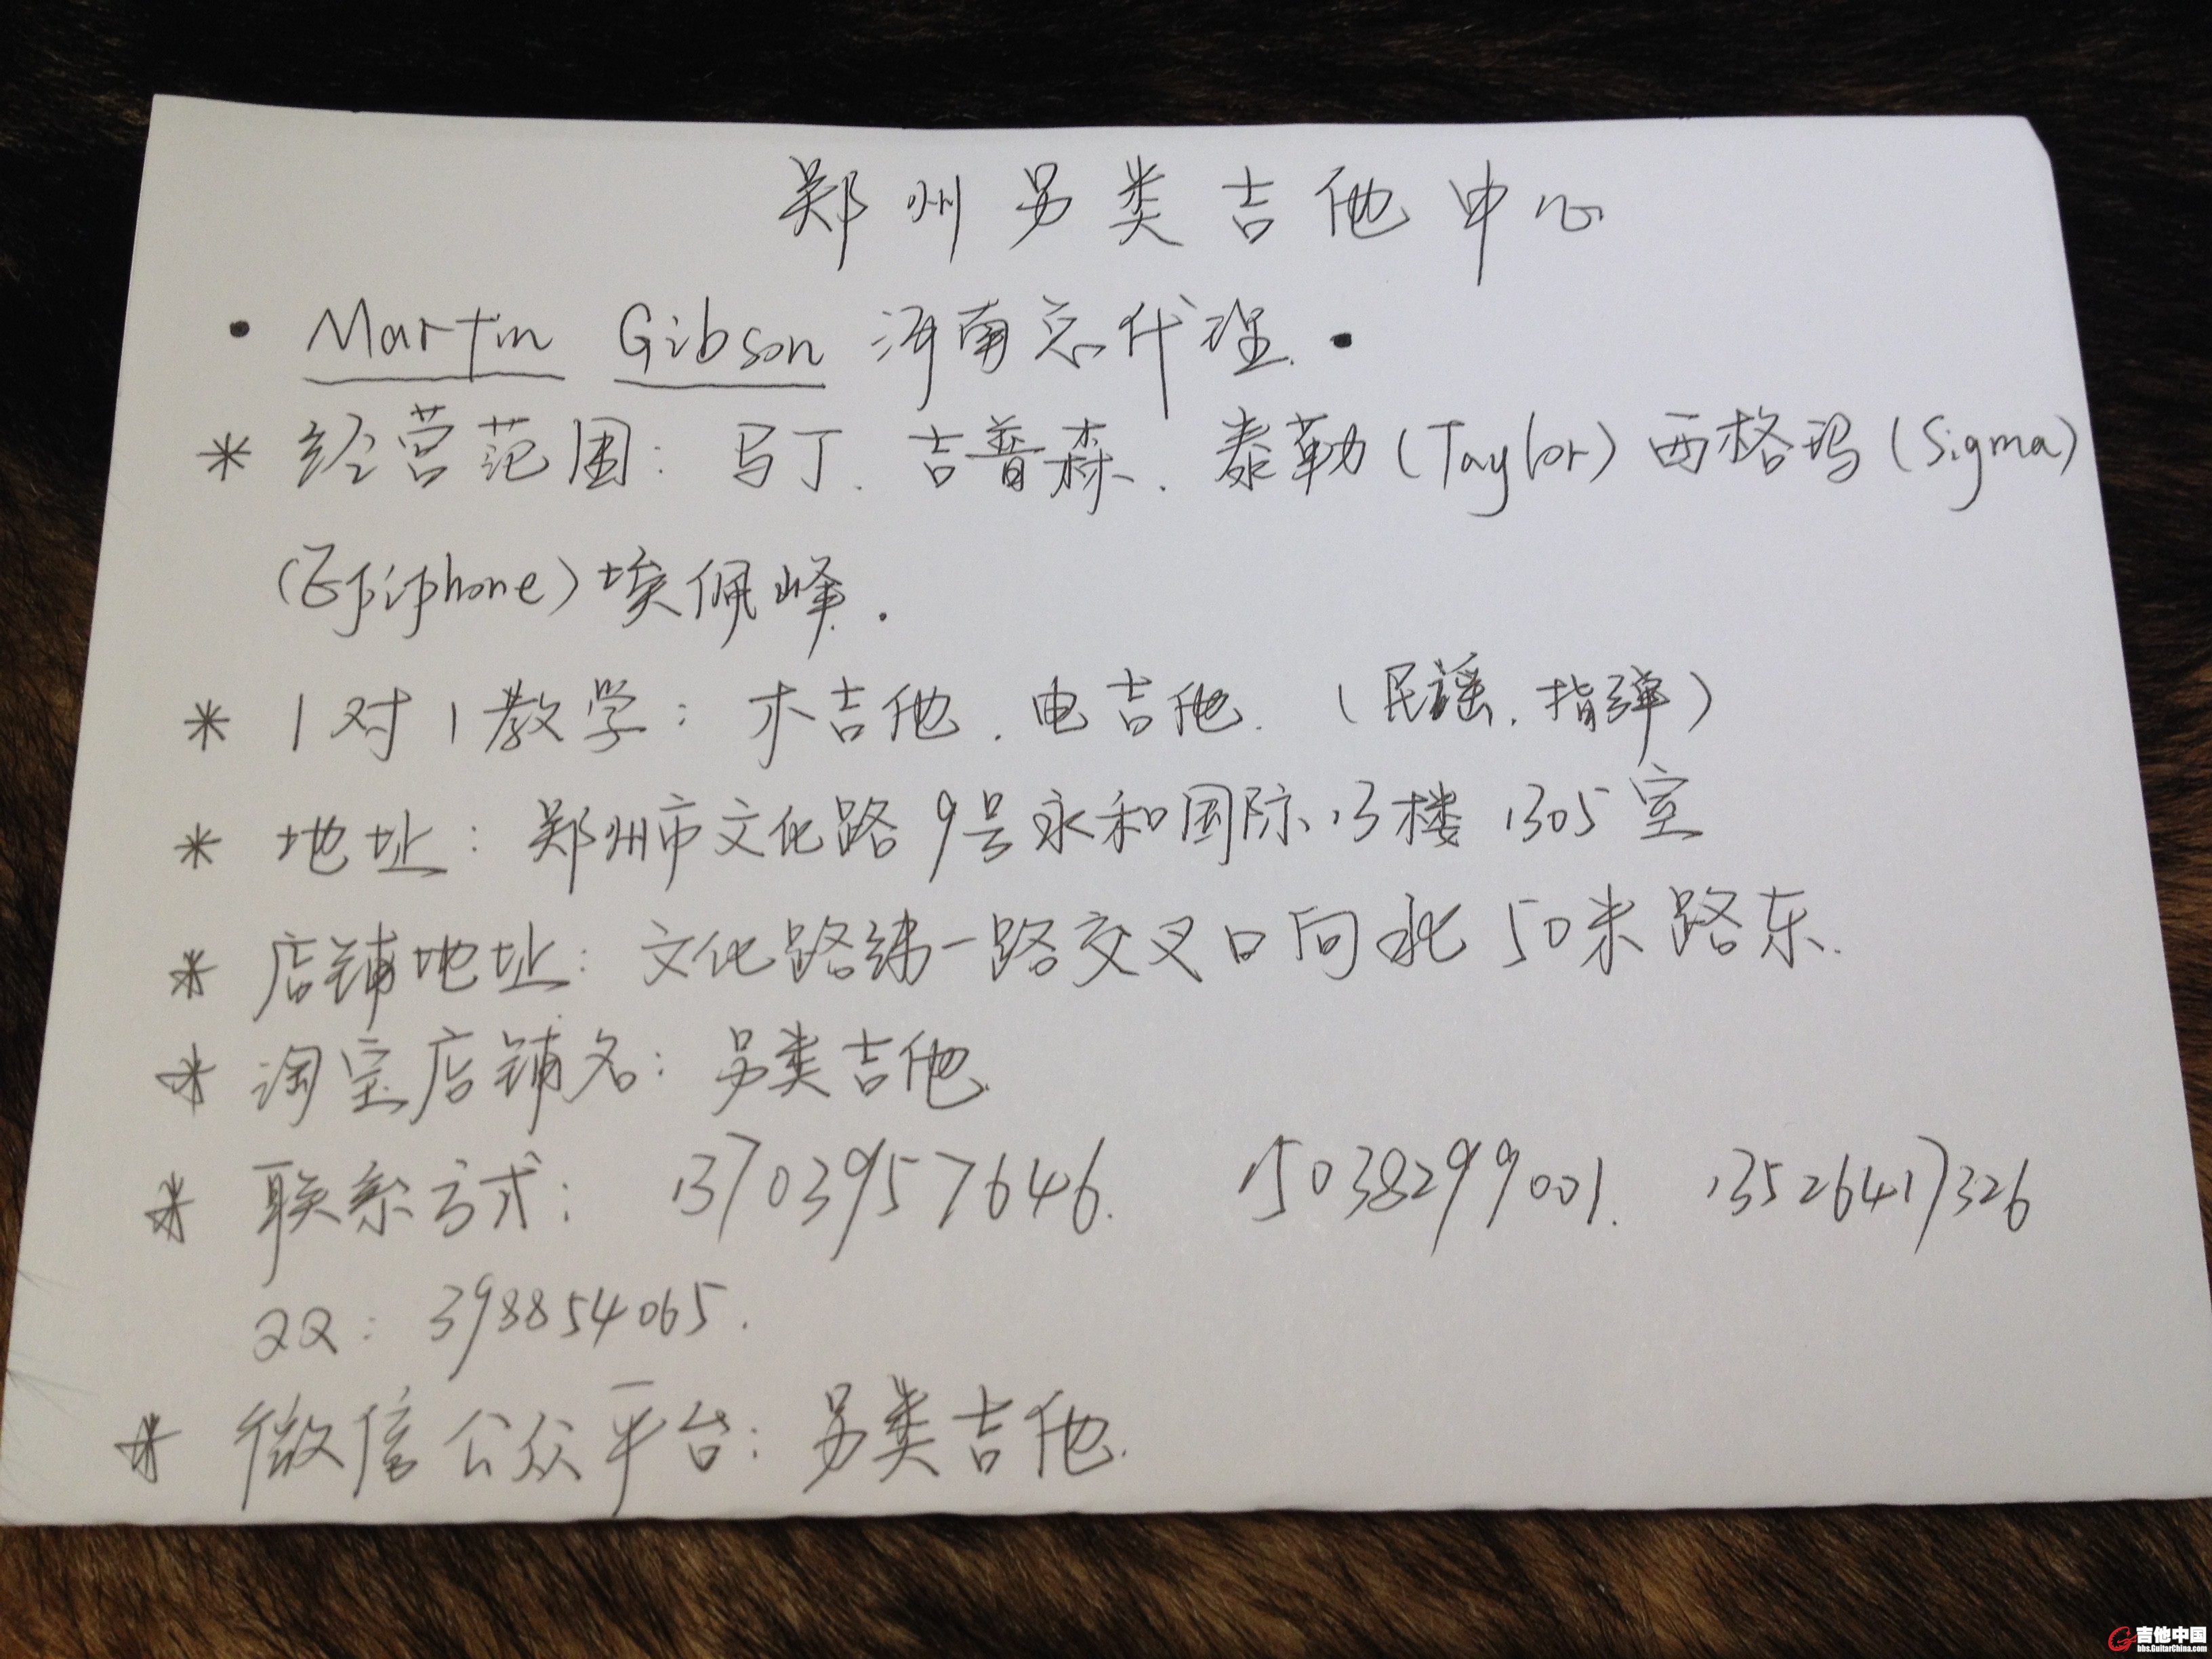 郑州另类吉他中心
• Martin Gibson 河南总代理. •
* 经营范围: 马丁. 吉普森. 泰勒(Taylor) 西格玛(Sigma)
(Epiphone) 埃佩峰.
* 1对1教学: 木吉他. 电吉他. (民谣. 指弹)
* 地址: 郑州市文化路9号永和国际13楼 1305室
* 店铺地址: 文化路纬一路交叉口向北50米路东.
* 淘宝店铺名: 另类吉他.
* 联系方式: 13703957646. 15038299001. 13526417326
QQ: 398854065.
* 微信公众平台: 另类吉他.
吉他中国
bbs.GuitarChina.com